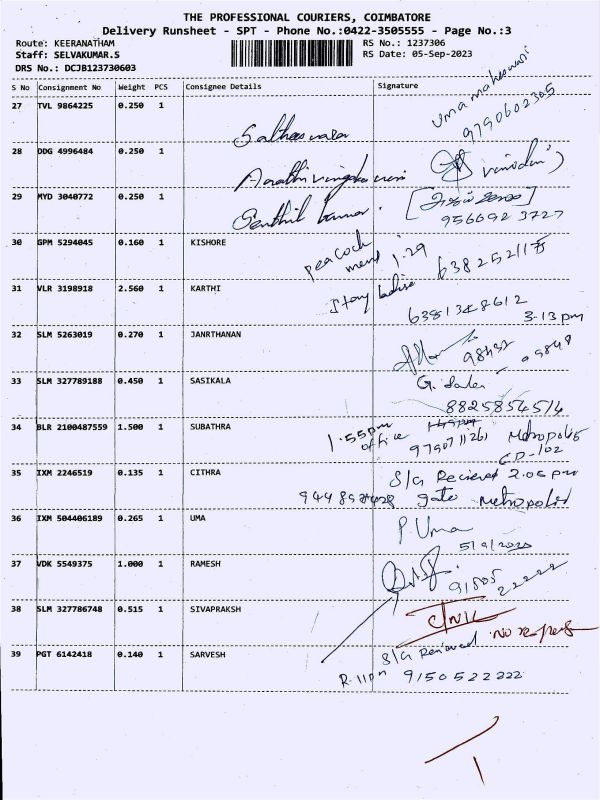 THE PROFESSIONAL COURIERS, COIMBATORE
Delivery Runsheet - SPT - Phone No.:0422-3505555 - Page No.:3
Route: KEERANATHAM RS No.: 1237306
Staff: SELVAKUMAR.S RS Date: 05-Sep-2023
DRS No.: DCJB123730603
S No Consignment No Weight PCS Consignee Details Signature
27 TVL 9864225 0.250 1 Uma maheswari
9790602305
28 DDG 4996484 0.250 1
29 MYD 3040772 0.250 1 Senthil kumar.
9566923727
30 GPM 5294045 0.160 1 KISHORE peacock
1.29 6382521175
31 VLR 3198918 2.560 1 KARTHI
6381348612
3-13 pm
32 SLM 5263019 0.270 1 JANRTHANAN
33 SLM 327789188 0.450 1 SASIKALA G.
8825854514
34 BLR 2100487559 1.500 1 SUBATHRA 1.55pm
office 9790711261 Metropolis
CD-102
35 IXM 2246519 0.135 1 CITHRA S/G Recieved 2.06 pm
gate Metropolis
36 IXM 504406189 0.265 1 UMA P. Uma
37 VDK 5549375 1.000 1 RAMESH
91505 22222
38 SLM 327786748 0.515 1 SIVAPRAKSH
No
39 PGT 6142418 0.140 1 SARVESH S/G Recieved
9150522222